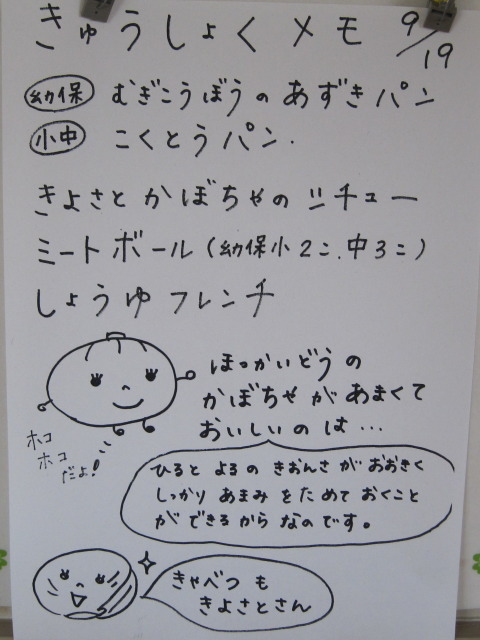 きゅうしょくメモ 9/19
幼保 むぎこうぼうのあずきパン
小中 こくとうパン.
きよさとかぼちゃのシチュー
ミートボール(幼保小2こ.中3こ)
しょうゆフレンチ
ほっかいどうの
かぼちゃがあまくて
おいしいのは…
ホコ
ホコ
だよ!
ひると よるの きおんさが おおきく
しっかり あまみを ためて おくこと
が できる から なのです。
きゃべつも
きよさとさん